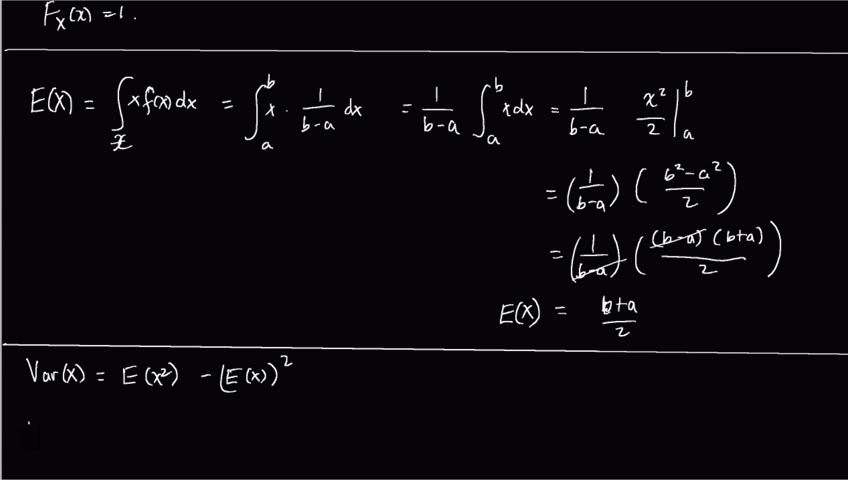 F_X(x) = 1.
E(X) = ∫_𝒳 x f(x) dx = ∫_a^b x · 1/(b-a) dx = 1/(b-a) ∫_a^b x dx = 1/(b-a) x²/2 |_a^b
= (1/(b-a)) ((b²-a²)/2)
= (1/(b-a)) ((b-a)(b+a)/2)
E(X) = (b+a)/2
Var(X) = E(X²) - (E(X))²